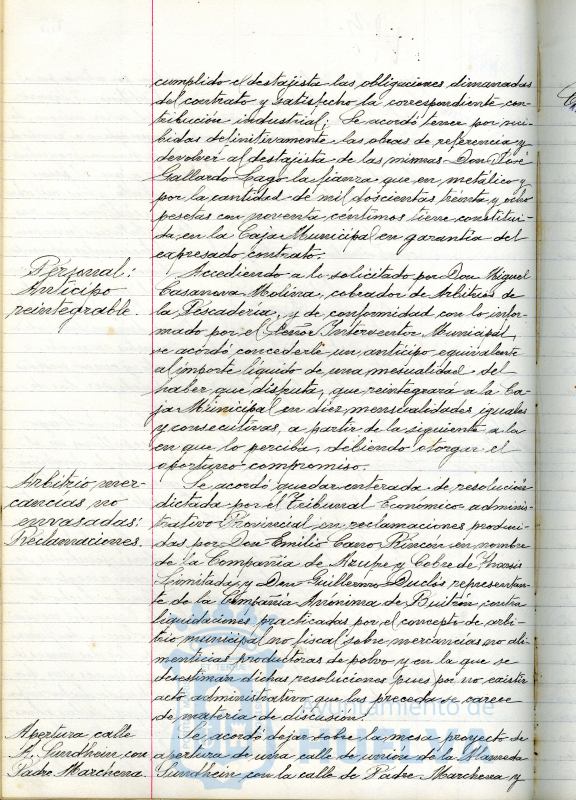 cumplido el destajista las obligaciones dimanadas
del contrato y satisfecho la correspondiente con-
tribución industrial; Se acordó tener por reci-
bidas definitivamente las obras de referencia y
devolver al destajista de las mismas Don José
Gallardo Lago la fianza que en metálico y
por la cantidad de mil doscientas treinta y ocho
pesetas con noventa céntimos tiene constitui-
da en la Caja Municipal en garantía del
expresado contrato.
Personal:
Anticipo
reintegrable.
Accediendo a lo solicitado por Don Miguel
Casanova Molina, cobrador de Arbitrios de
la Pescadería, y de conformidad con lo infor-
mado por el Señor Interventor Municipal,
se acordó concederle un anticipo equivalente
al importe líquido de una mesualidad del
haber que disfruta, que reintegrará a la Ca-
ja Municipal en diez mensualidades iguales
y consecutivas, a partir de la siguiente a la
en que lo perciba, debiendo otorgar el
oportuno compromiso.
Arbitrio mer-
cancías no
envasadas:
Reclamaciones.
Se acordó quedar enterada de resolución
dictada por el Tribunal Económico adminis-
trativo Provincial en reclamaciones produci-
das por Don Emilio Cano Rincón en nombre
de la Compañía de Azufre y Cobre de Tharsis
Limitada, y Don Guillermo Duclós representan-
te de la Compañía Anónima de Buitrón, contra
liquidaciones practicadas por el concepto de arbi-
trio municipal no fiscal sobre mercancías no ali-
menticias productoras de polvo y en la que se
desestiman dichas resoluciones pues por no existir
acto administrativo que las preceda se carece
de materia de discusión.
Apertura calle
A. Sundhein con
Padre Marchena.
Se acordó dejar sobre la mesa proyecto de
apertura de una calle de unión de la Alameda
Sundhein con la calle de Padre Marchena y
Ayuntamiento de